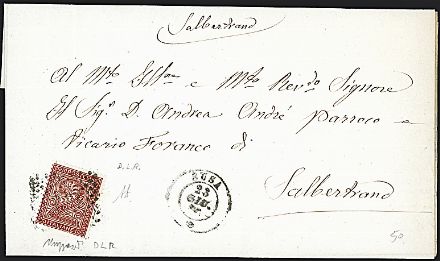 Salbertrand
Al Mto Illre e Mto Revdo Signore
Il Sigr D. Andrea André Parroco e
Vicario Foraneo di
D.L.R.
SUSA
23
GIU
Salbertrand
D L R
50